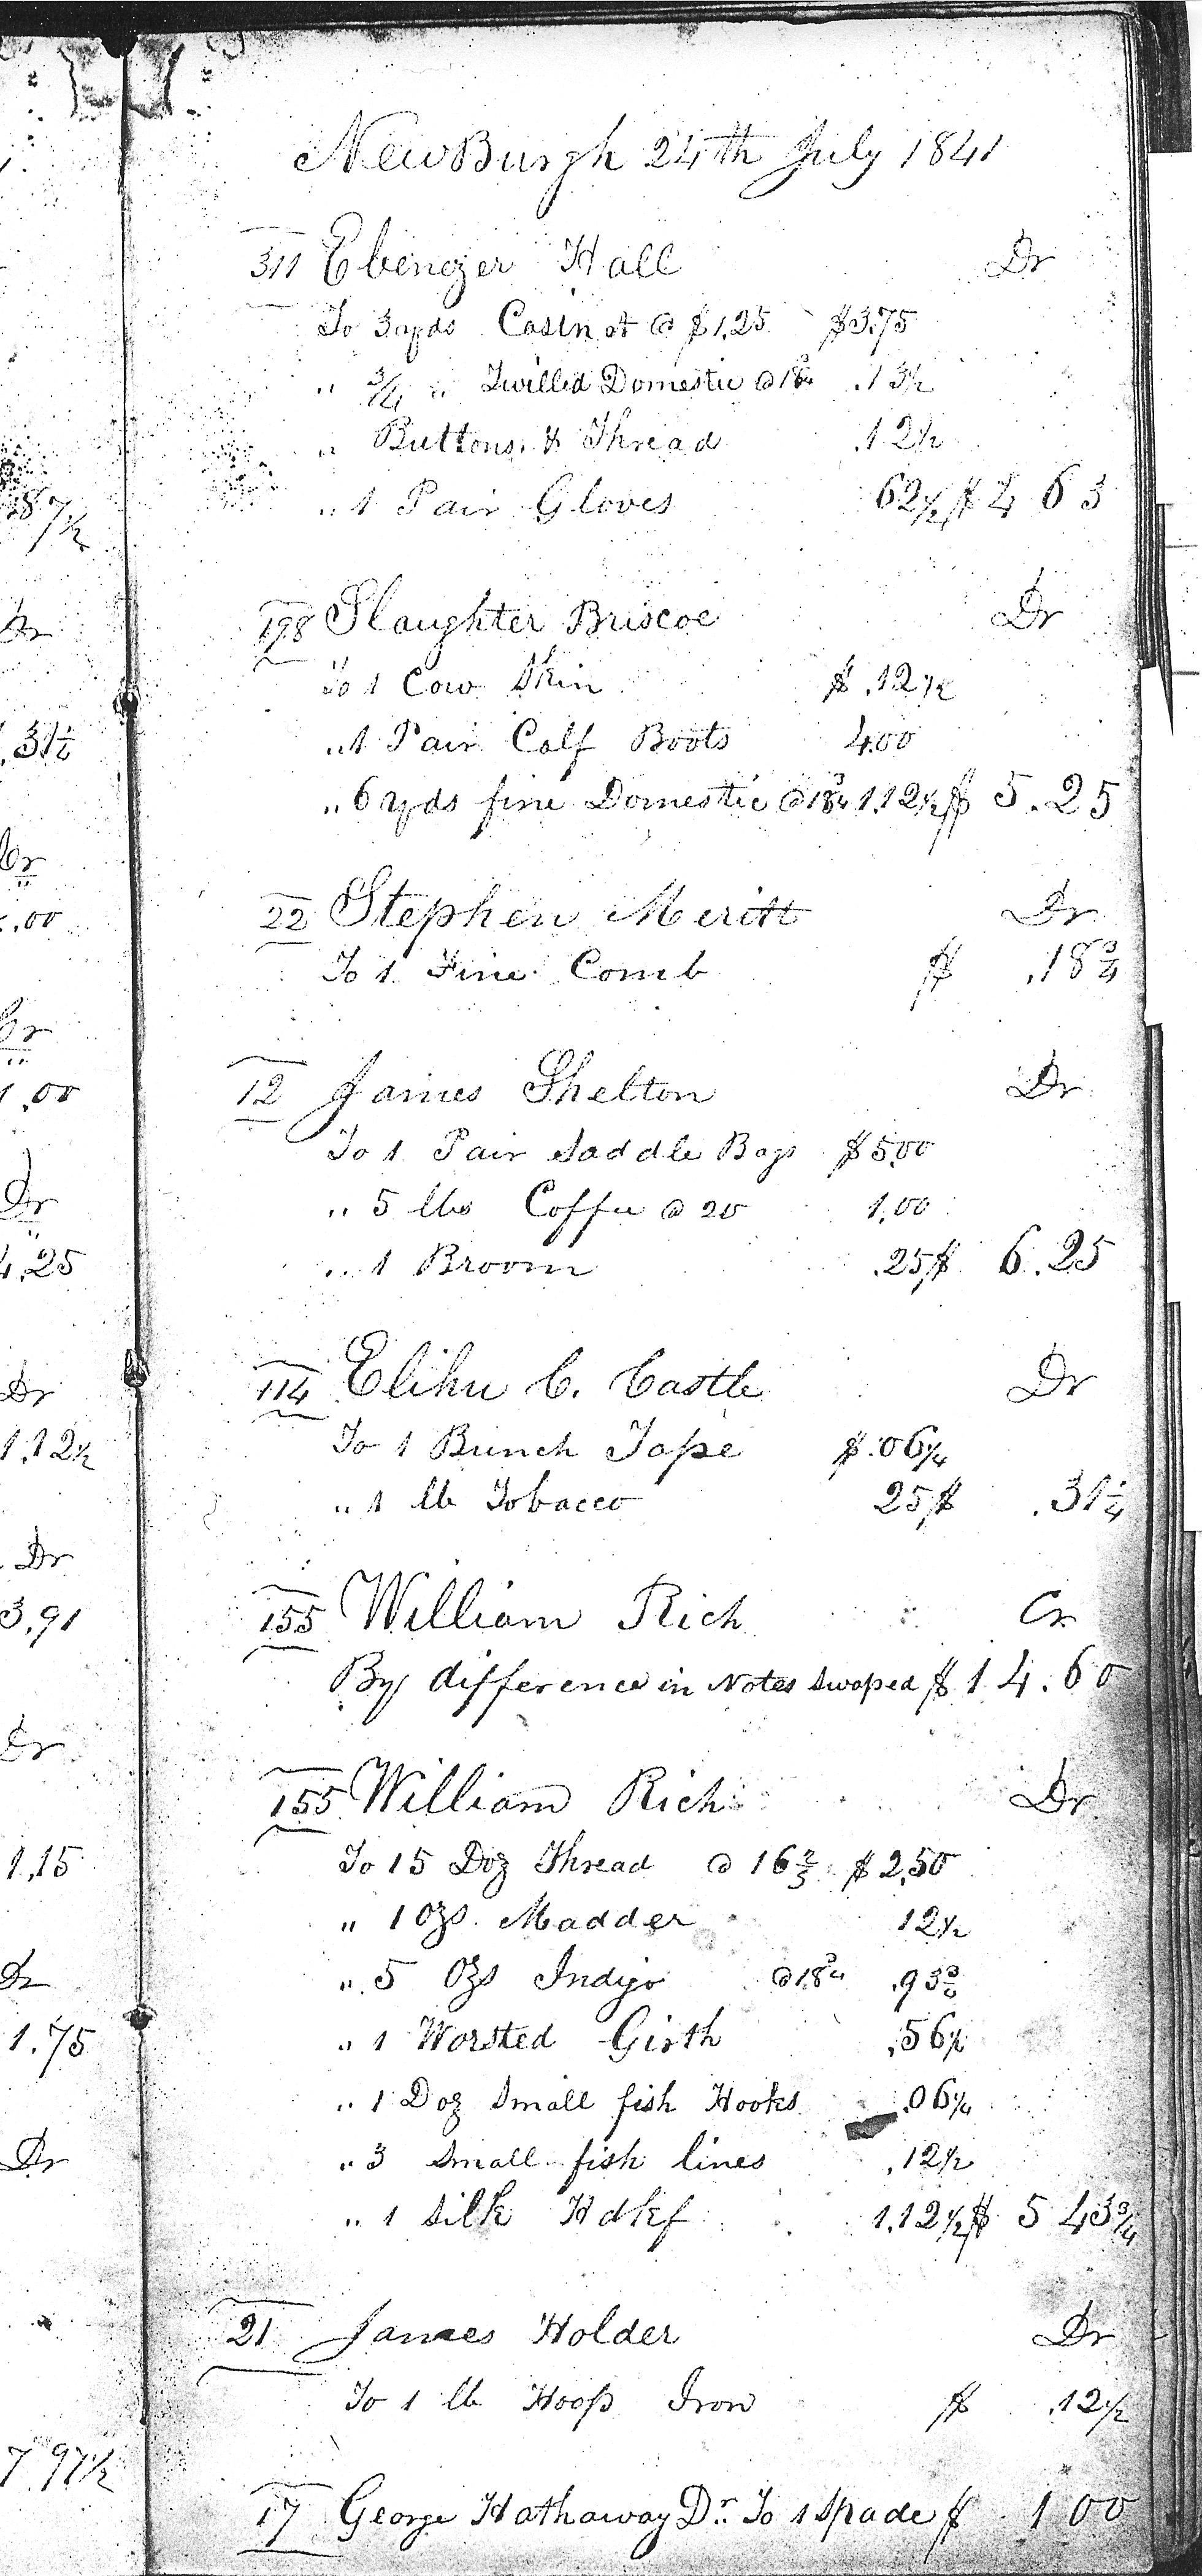 NewBurgh 24th July 1841
311 Ebenezer Hall Dr
To 3 yds Casinet @ $1.25 $3.75
" 3/4 " Twilled Domestic @ 18¾ .13½
" Buttons & Thread .12½
" 1 Pair Gloves 62½ $4 63
198 Slaughter Briscoe Dr
To 1 Cow Skin $ .12½
" 1 Pair Calf Boots 4.00
" 6 yds fine Domestic @ 18¾ 1.12½ $ 5.25
22 Stephen Meritt Dr
To 1 Fine Comb $ .18¾
12 James Shelton Dr
To 1 Pair Saddle Bags $5.00
" 5 lbs Coffee @ 20 1.00
" 1 Broom .25 $ 6.25
114 Elihu C. Castle Dr
To 1 Bunch Tape $.06¼
" 1 lb Tobacco 25 $ .31¼
155 William Rich Cr
By difference in Notes Swoped $14.60
155 William Rich Dr
To 15 Doz Thread @ 16⅔ $2.50
" 1 Ozs Madder 12½
" 5 Ozs Indigo @ 18¾ .93¾
" 1 Worsted Girth .56¼
" 1 Doz Small fish Hooks .06¼
" 3 Small fish lines .12½
" 1 Silk Hdkf 1.12½ $ 5 43¾
21 James Holder Dr
To 1 lb Hoop Iron $ .12½
17 George Hathaway Dr. To 1 Spade $ 1 00
87½
Dr
.31¼
Cr
.00
Cr
1.00
Dr
4.25
Dr
1.12½
Dr
3.91
Dr
1.15
Dr
1.75
Dr
7.97½